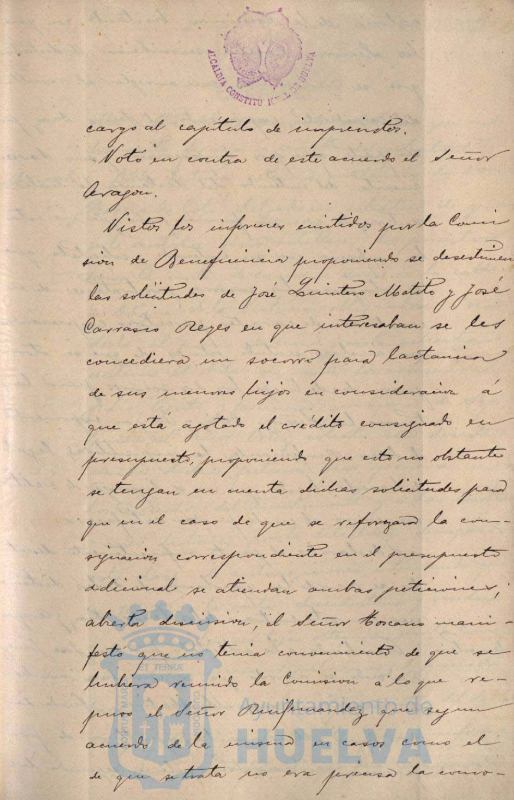 ALCALDIA CONSTITU NAL DE HUELVA
cargo al capítulo de imprevistos.
Votó en contra de este acuerdo el Señor
Aragon.
Vistos los informes emitidos por la Comi
sion de Beneficencia proponiendo se desestimen
las solicitudes de José Quintero Matito y José
Carrasco Reyes en que interesaban se les
concediera un socorro para lactancia
de sus menores hijos en consideracion á
que está agotado el crédito consignado en
presupuesto, proponiendo que esto no obstante
se tengan en cuenta dichas solicitudes para
que en el caso de que se reforzara la con-
signacion correspondiente en el presupuesto
adicional se atiendan ambas peticiones;
abierta discusion, el Señor Toscano mani-
festo que no tenia conocimiento de que se
hubiera reunido la Comision á lo que re-
puso el Señor Ruifernandez que segun
acuerdo de la misma en casos como el
de que se trata no era precisa la convo-
Ayuntamiento de
HUELVA